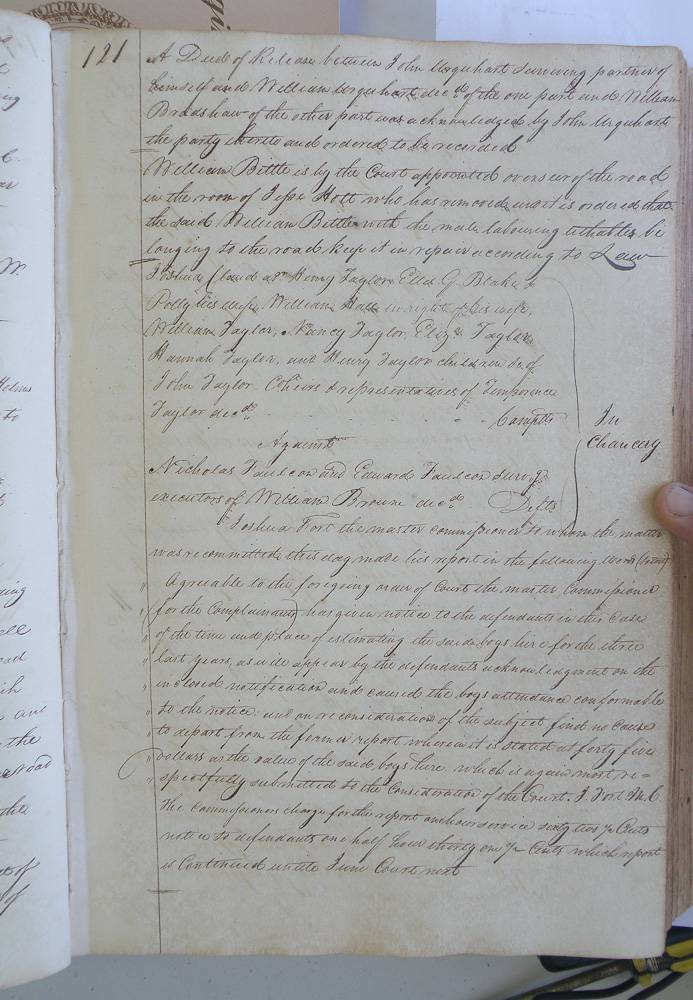 121
A Deed of Release between John Urquhart surviving partner of
himself and William Urquhart decd. of the one part and William
Bradshaw of the other part was acknowledged by John Urquhart
the party thereto and ordered to be recorded
William Bittle is by the Court appointed overseer of the road
in the room of Jesse Holt who has removed, and it is ordered that
the said William Bittle with the male labouring tithables be
longing to the road keep it in repair according to Law
Joshua Claud adr. Henry Taylor, G. Blake &
Polly his wife, William Hall in right of his wife,
William Taylor, Nancy Taylor, Eliza Taylor,
Hannah Taylor, and Henry Taylor children &c of
John Taylor Coheirs & representatives of Temperence
Taylor decd. Complts
Against
In
Chancery
Nicholas Faulcon and Edward Faulcon survg.
executors of William Browne decd. Defts
Joshua Fort the master commissioner to whom the matter
was recommitted this day made his report in the following words (towit)
" Agreeable to the foregoing order of Court the master Commissioner
" (for the Complainants) has given notice to the defendants in this case
" of the time and place of estimating the said boys hire for the three
" last years, as will appear by the defendants acknowledgment on the
" inclosed notification and caused the boys attendance conformable
" to the notice, and on reconsideration of the subject find no cause
" to depart from the former report wherein it is stated at forty five
" dollars as the value of the said boys hire which is again most re=
" spectfully submitted to the Consideration of the Court. J. Fort M.C
The commissioners charge for this report one hour service sixty two ½ Cents
notice to defendants one half hour thirty one ¼ Cents which report
is Continued untill June Court next